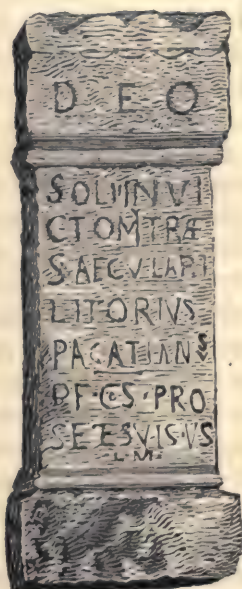 DEO
SOLI INVI
CTO MTRÆ
SAECVLARI
LITORIVS
PACATIANVS
BF·CS·PRO
SE ET SVIS VS
L·M·